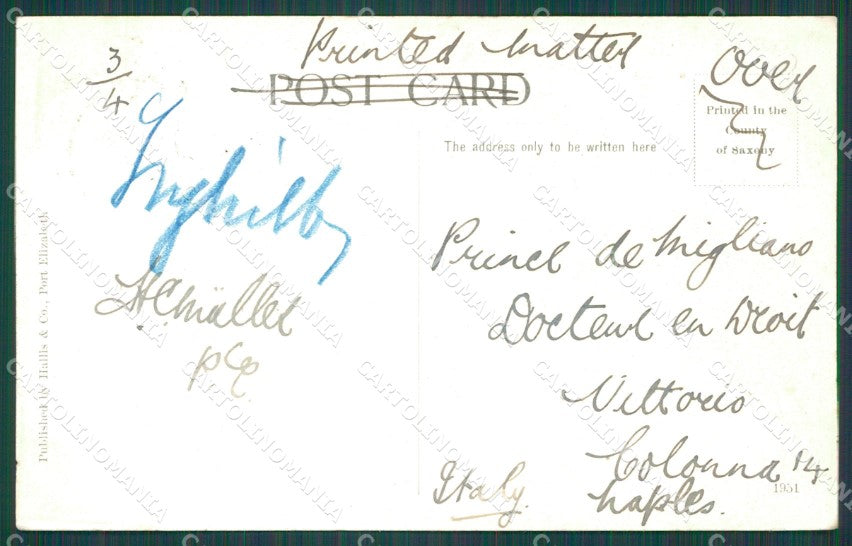 Printed Matter
3/4
POST CARD
Over
Printed in the
County
of Saxony
The address only to be written here
Published by Hallis & Co., Port Elizabeth
Prince de Migliano
Docteur en Droit
Vittorio
Colonna 14
Naples.
Italy
1951
CARTOLINOMANIA